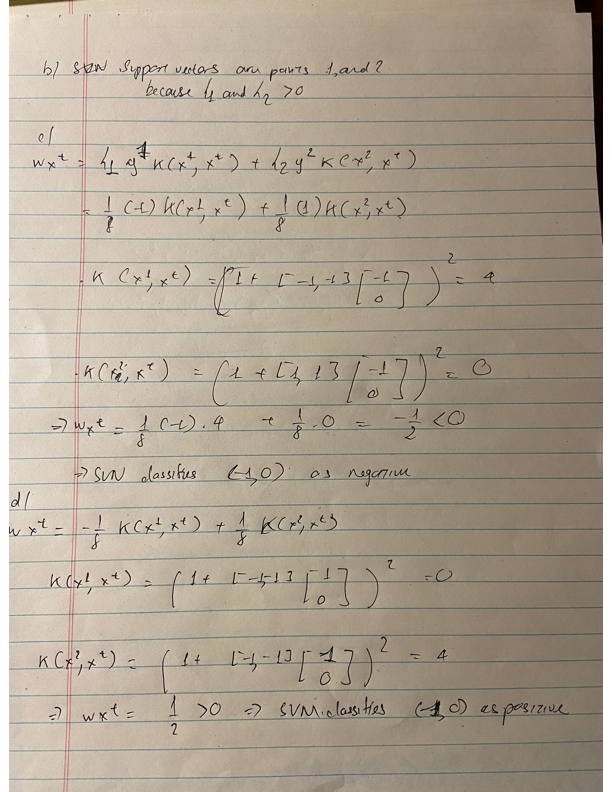 b) SVN Support vectors are points 1, and 2
because h1 and h2 >0
c/
wx^t = h1 y^1 K(x^1, x^t) + h2 y^2 K(x^2, x^t)
= 1/8 (-1) K(x^1, x^t) + 1/8 (1) K(x^2, x^t)
K(x^1, x^t) = (1 + [-1, -1] [-1 0])^2 = 4
K(x^2, x^t) = (1 + [1, 1] [-1 0])^2 = 0
=> wx^t = 1/8 (-1) . 4 + 1/8 . 0 = -1/2 <0
=> SVN classifies (-1, 0) as negative
d/
wx^t = - 1/8 K(x^1, x^t) + 1/8 K(x^2, x^t)
K(x^1, x^t) = (1 + [-1, -1] [1 0])^2 = 0
K(x^2, x^t) = (1 + [-1, -1] [1 0])^2 = 4
=> wx^t = 1/2 >0 => SVM classifies (-1, 0) as positive